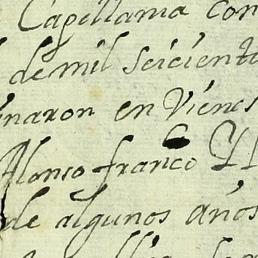 Capellania con
de mil seiciento
naron en Vienes
Alonso franco Y
de algunos años